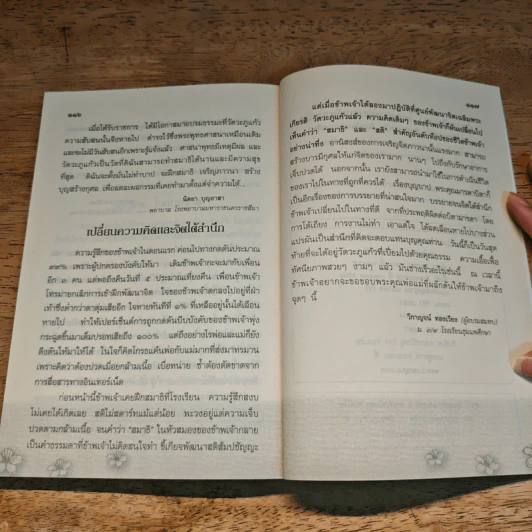 ๑๑๖
เมื่อได้รับราชการ ได้มีโอกาสมาอบรมธรรมะที่วัดวะภูแก้ว
ความสับสนนั้นจึงหายไป ดำรงไว้ซึ่งพระพุทธศาสนาเหมือนเดิม
และจะไม่มีวันสับสนอีกเพราะรู้แจ้งแล้ว ศาสนาพุทธมีเหตุมีผล และ
วัดวะภูแก้วเป็นวัดที่ดิฉันสามารถทำสมาธิได้นานและมีความสุข
ที่สุด ดิฉันจะตั้งมั่นไม่ทำบาป จะฝึกสมาธิ เจริญภาวนา สร้าง
บุญสร้างกุศล เพื่อลดละผลกรรมที่เคยทำมาตั้งแต่จำความได้...
นิตยา บุญอาสา
พยาบาล โรงพยาบาลมหาราชนครราชสีมา
เปลี่ยนความคิดและจิตใต้สำนึก
ความรู้สึกของข้าพเจ้าในตอนแรก ค่อนไปทางกดดันประมาณ
๙๙% เพราะผู้ปกครองบังคับให้มา เดิมข้าพเจ้ากะจะมากับเพื่อน
อีก ๓ คน แต่พอถึงคืนวันที่ ๕ ประมาณเที่ยงคืน เพื่อนข้าพเจ้า
โทรมายกเลิกการเข้าฝึกพัฒนาจิต ใจของข้าพเจ้าตกลงไปอยู่ที่ฝ่า
เท้าซึ่งต่ำกว่าตาตุ่มเสียอีก ใจหายทันทีที่ ๑% ที่เหลืออยู่นั้นได้เลือน
หายไป ทำให้เปอร์เซ็นต์การถูกกดดันบีบบังคับของข้าพเจ้าพุ่ง
กระฉูดขึ้นมาเต็มปรอทเสียถึง ๑๐๐% แต่ถึงอย่างไรพ่อและแม่ก็ยัง
ดึงดันให้มาให้ได้ ในใจก็คิดโกรธแค้นพ่อกับแม่มากที่ส่งมาทรมาน
เพราะคิดว่าต้องปวดเมื่อยกล้ามเนื้อ เบื่อหน่าย ซ้ำต้องตัดขาดจาก
การสื่อสารทางอินเทอร์เน็ต
ก่อนหน้านี้ข้าพเจ้าเคยฝึกสมาธิที่โรงเรียน ความรู้สึกสงบ
ไม่เคยได้เกิดเลย สติไม่สตาร์ทแม้แต่น้อย พะวงอยู่แต่ความเจ็บ
ปวดตามกล้ามเนื้อ จนคำว่า "สมาธิ" ในหัวสมองของข้าพเจ้ากลาย
เป็นคำธรรมดาที่ข้าพเจ้าไม่คิดสนใจทำ ขี้เกียจพัฒนาสติสัมปชัญญะ
๑๑๗
แต่เมื่อข้าพเจ้าได้ลองมาปฏิบัติที่ศูนย์พัฒนาจิตเฉลิมพระ
เกียรติ วัดวะภูแก้วแล้ว ความคิดเดิมๆ ของข้าพเจ้าก็ผันเปลี่ยนไป
เห็นคำว่า "สมาธิ" และ "สติ" สำคัญอันดับท็อปของชีวิตข้าพเจ้า
อย่างน่าทึ่ง อานิสงส์ของการเจริญจิตภาวนานั้นแรงมาก สามารถ
สร้างบารมีกุศลให้แก่จิตของเรามาก นานๆ ไปถึงกับรักษาอาการ
เจ็บปวดได้ นอกจากนั้น เรายังสามารถนำมาใช้ในการดำเนินชีวิต
ของเราไปในทางที่ถูกที่ควรได้ เรื่องบุญบาป พระคุณมารดาบิดาก็
เป็นอีกเรื่องของการบรรยายที่น่าสนใจมาก บรรยายจนจิตใต้สำนึก
ข้าพเจ้าเปลี่ยนไปในทางที่ดี จากที่ประพฤติผิดต่อบิดามารดา โดย
การโต้เถียง การงานไม่ทำ เอาแต่ใจ ได้ลดเลือนหายไปบางส่วน
แปรผันเป็นสำนึกที่คิดจะตอบแทนบุญคุณท่าน วันนี้ก็เป็นวันสุด
ท้ายที่จะได้อยู่วัดวะภูแก้วที่เปี่ยมไปด้วยคุณธรรม ความเอื้อเฟื้อ
ทัศนียภาพสวยๆ งามๆ แล้ว มันช่างเร็วอะไรเช่นนี้ ณ เวลานี้
ข้าพเจ้าอยากจะขอขอบพระคุณพ่อแม่ที่ผลักดันให้ข้าพเจ้ามาถึง
จุดๆ นี้
วิกาญจน์ ทองเวียง (ผู้อบรมสมทบ)
ม. ๓/๙ โรงเรียนชุมแพศึกษา